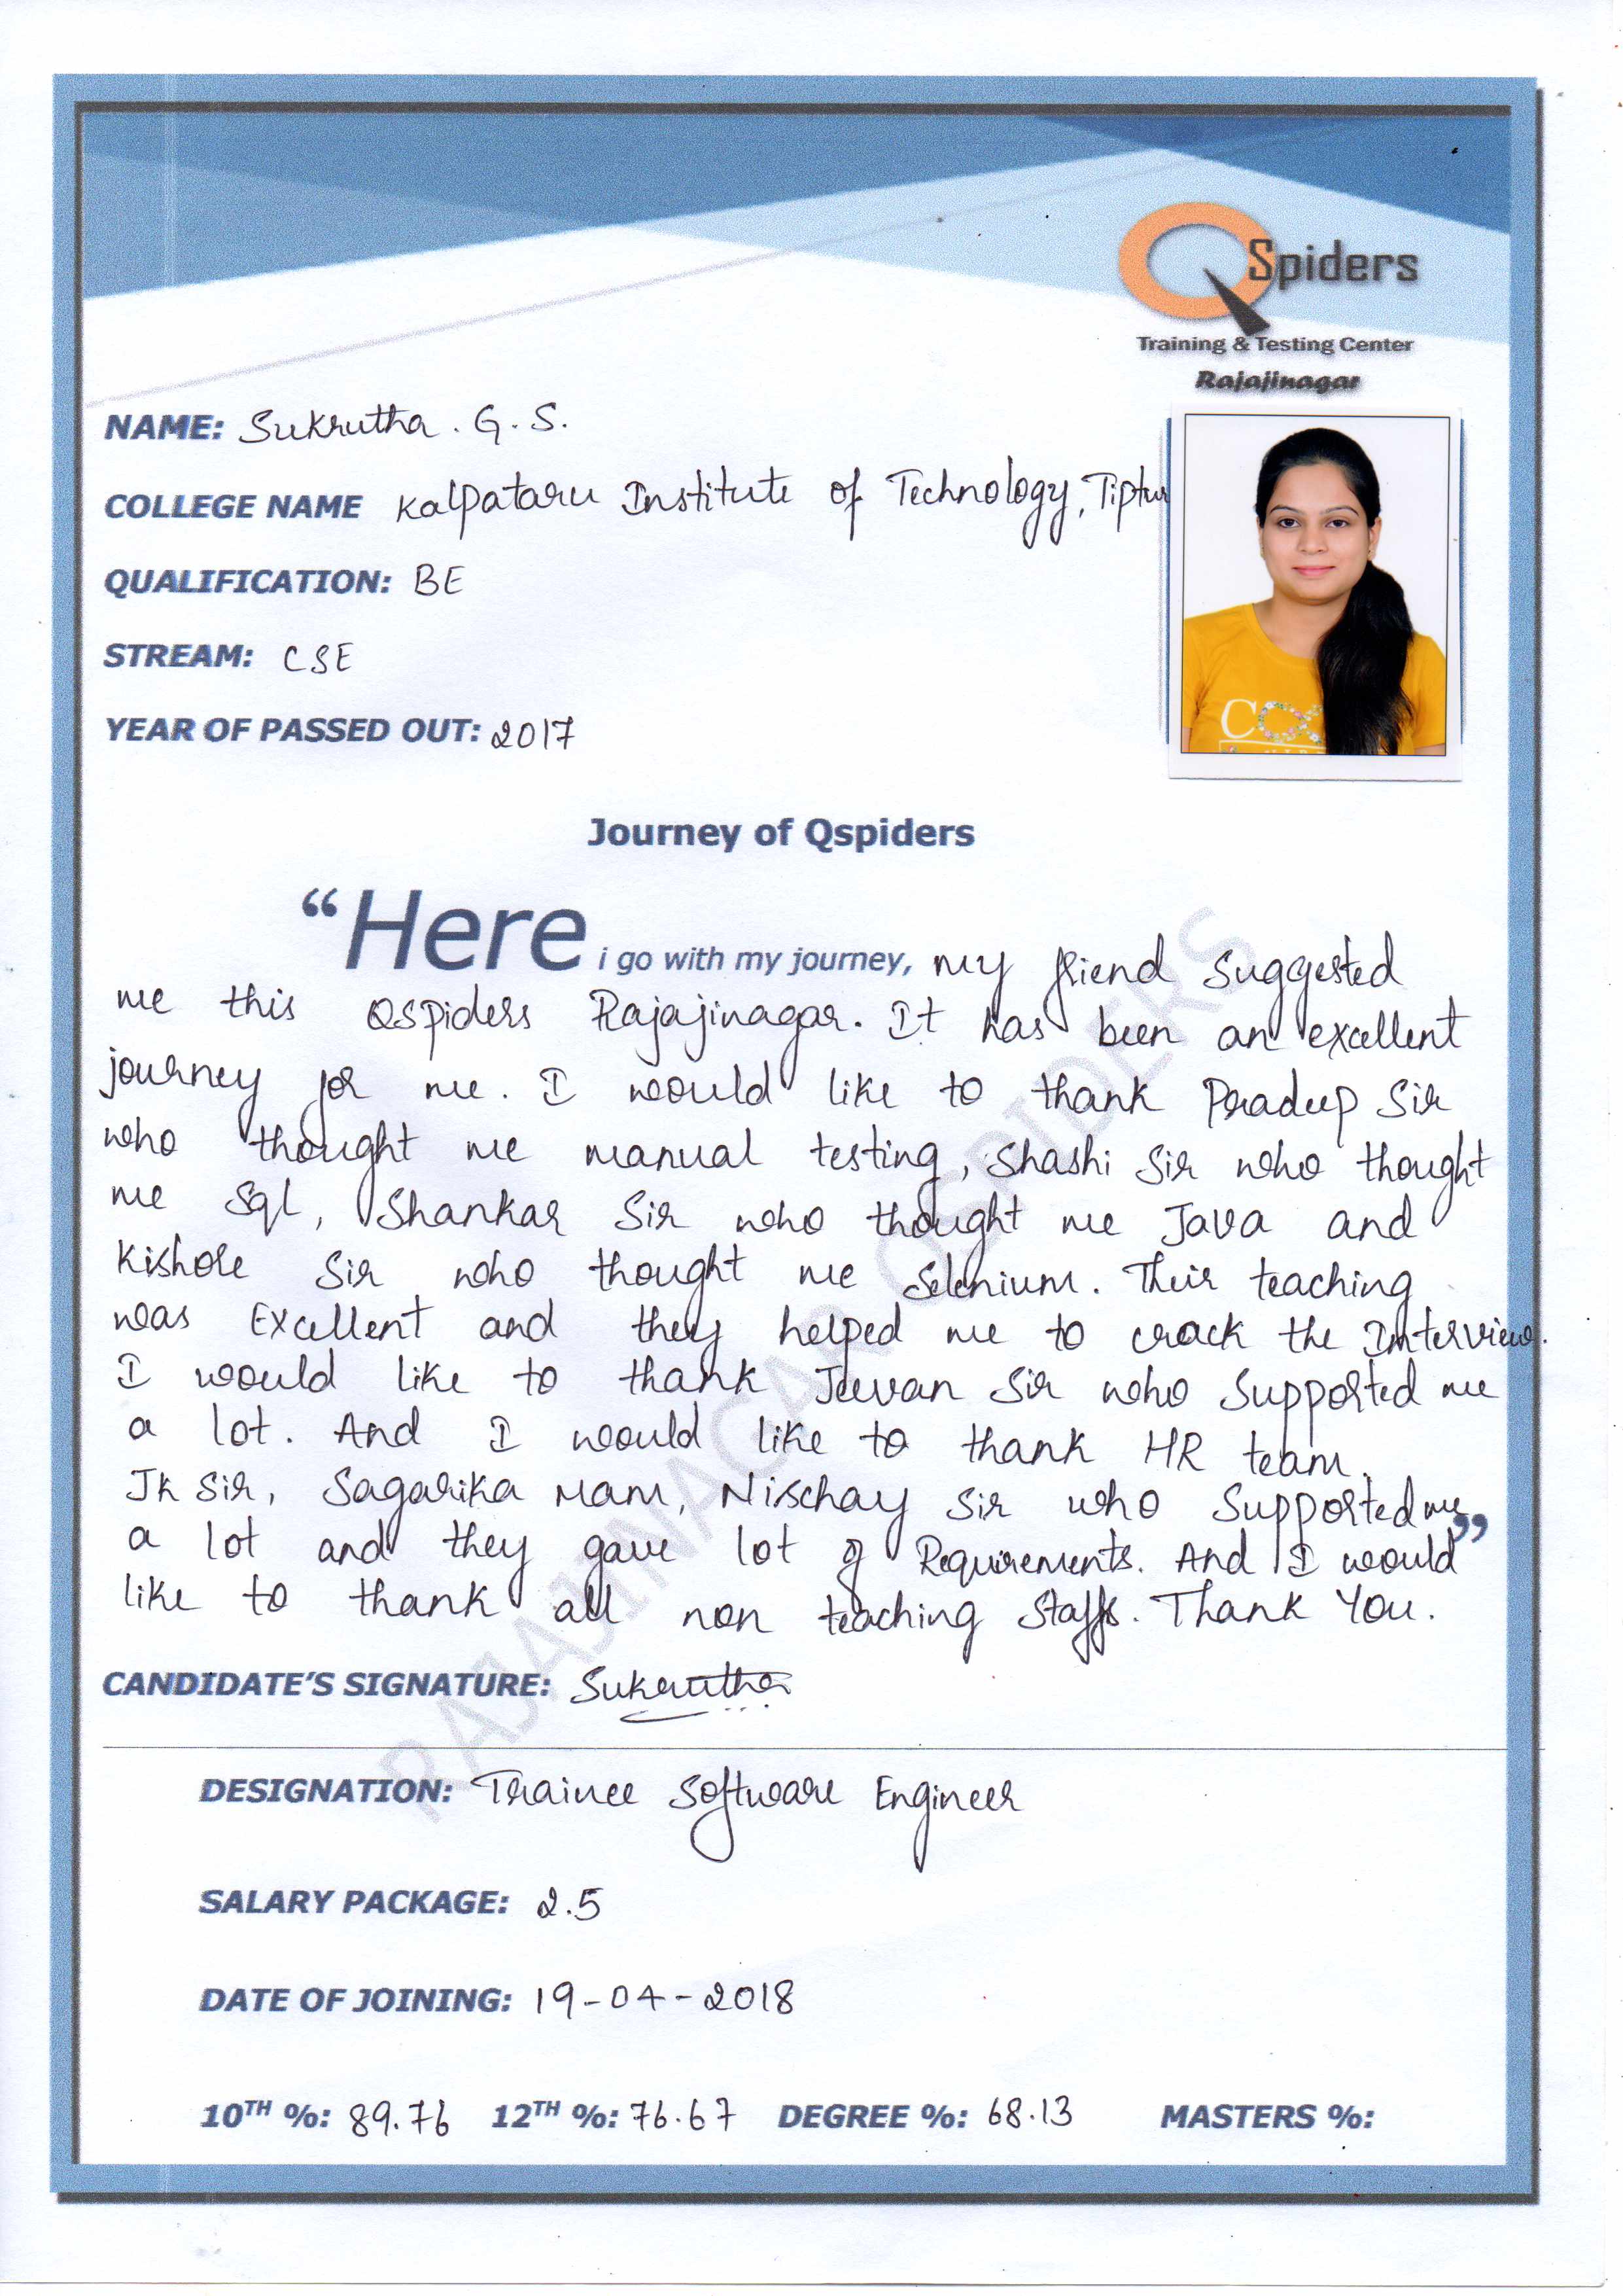 QSpiders
Training & Testing Center
Rajajinagar
NAME: Sukrutha . G . S.
COLLEGE NAME Kalpataru Institute of Technology, Tiptur
QUALIFICATION: BE
STREAM: CSE
YEAR OF PASSED OUT: 2017
Journey of Qspiders
“Here i go with my journey, my friend suggested
me this QSpiders Rajajinagar. It has been an excellent
journey for me. I would like to thank Pradeep Sir
who thought me manual testing, Shashi Sir who thought
me Sql, Shankar Sir who thought me Java and
Kishore Sir who thought me Selenium. Their teaching
was Excellent and they helped me to crack the Interview.
I would like to thank Jeevan Sir who Supported me
a lot. And I would like to thank HR team,
JK Sir, Sagarika Mam, Nischay Sir who Supported me”
a lot and they gave lot of Requirements. And I would
like to thank all non teaching Staffs. Thank You.
CANDIDATE’S SIGNATURE: Sukrutha
DESIGNATION: Trainee Software Engineer
SALARY PACKAGE: 2.5
DATE OF JOINING: 19-04-2018
10TH %: 89.76 12TH %: 76.67 DEGREE %: 68.13 MASTERS %:
RAJAJINAGAR QSPIDERS